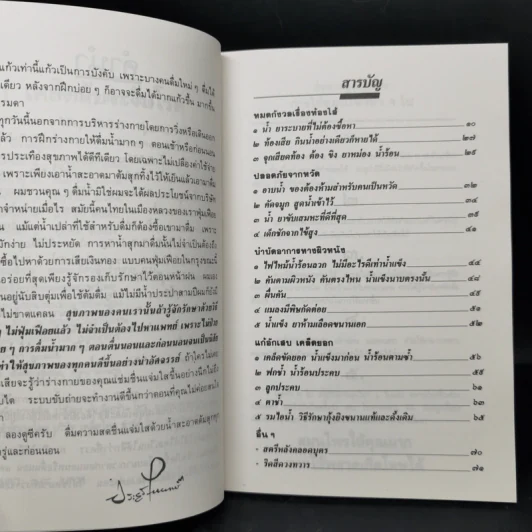 แก้วเท่านี้แก้วเป็นการบังคับ เพราะบางคนดื่มใหม่ ๆ ดื่มได้
เดียว หลังจากฝึกบ่อย ๆ ก็อาจจะดื่มได้มากแก้วขึ้น มากขึ้น
รมดา
ทุกวันนี้นอกจากการบริหารร่างกายโดยการวิ่งหรือเดินออก
แล้ว การฝึกร่างกายให้ดื่มน้ำมาก ๆ ตอนเช้าหรือก่อนนอน
รประเทืองสุขภาพได้ดีทีเดียว โดยเฉพาะไม่เปลืองค่าใช้จ่าย
เพราะเพียงเอาน้ำสะอาดมาต้มสุกทิ้งไว้ให้เย็นแล้วเอามาดื่ม
ผมชวนคุณ ๆ ดื่มน้ำมิใช่ผมจะได้ผลประโยชน์จากบริษัท
จำหน่ายเมื่อไร สมัยนี้คนไทยในเมืองหลวงของเราฟุ่มเฟือย
แม้แต่น้ำเปล่าที่ใช้สำหรับดื่มก็ต้องซื้อเขามาดื่ม เพราะ
มักง่าย ไม่ประหยัด การหาน้ำสุกมาดื่มนั้นไม่จำเป็นต้องถึง
ซื้อไปหาด้วยการเสียเงินทอง แบบคนฟุ่มเฟือยในกรุงขณะนี้
อร่อยที่สุดเพียงรู้จักรองเก็บรักษาไว้ตอนหน้าฝน
อยู่นับสิบตุ่มเพื่อใช้ต้มดื่ม แม้ไม่มีน้ำประปาสามปีผมก็ยัง
ไม่ขาดแคลน สุขภาพของคนเรานั้นถ้ารู้จักรักษาด้วยวิธี
ไม่ฟุ่มเฟือยแล้ว ไม่จำเป็นต้องไปหาแพทย์ เพราะไม่ป่วย
ๆ การดื่มน้ำมาก ๆ ตอนตื่นนอนและก่อนนอนจนเป็นนิสัย
ทำให้สุขภาพของทุกคนดีขึ้นอย่างน่าอัศจรรย์ ถ้าใครไม่เคย
เสียจะรู้ว่าร่างกายของคุณแช่มชื่นแจ่มใสขึ้นอย่างนึกไม่ถึง
ระบบขับถ่ายจะทำงานดีขึ้นกว่าตอนที่คุณไม่ค่อยสนใจ
ลองดูซีครับ ดื่มความสดชื่นแจ่มใสด้วยน้ำสะอาดต้มสุก
รู่และก่อนนอน
สารบัญ
หมดกังวลเรื่องท้องไส้
๑ น้ำ ยาระบายที่ไม่ต้องซื้อหา ๑๐
๒ ท้องเสีย กินน้ำอย่างเดียวก็หายได้ ๒๗
๓ จุกเสียดท้อง ท้อง ขิง ยาหม่อง น้ำร้อน ๒๕
ปลอดภัยจากหวัด
๑ อาบน้ำ ของต้องห้ามสำหรับคนเป็นหวัด ๓๒
๒ คัดจมูก สูดน้ำเข้าไว้ ๓๔
๓ น้ำ ยาขับเสมหะที่ดีที่สุด ๓๕
๔ เด็กชักจากไข้สูง ๔๑
บำบัดอาการทางผิวหนัง
๑ ไฟไหม้น้ำร้อนลวก ไม่มีอะไรดีเท่าน้ำแข็ง ๔๔
๒ คันตามผิวหนัง คันตรงไหน น้ำแข็งนาบตรงนั้น ๔๘
๓ ผื่นคัน ๔๙
๔ แมลงมีพิษกัดต่อย ๕๑
๕ น้ำแข็ง ยาห้ามเลือดขนานเอก ๕๒
แก้อักเสบ เคล็ดยอก
๑ เคล็ดขัดยอก น้ำแข็งมาก่อน น้ำร้อนตามซ้ำ ๕๖
๒ ฟกช้ำ น้ำร้อนประคบ ๕๙
๓ ถูกประคบ ๖๑
๔ ตาช้ำ ๖๓
๕ รมไอน้ำ วิธีรักษากุ้งยิงขนานแท้และดั้งเดิม ๖๕
อื่น ๆ
- สตรีหลังคลอดบุตร ๗๐
- ริดสีดวงทวาร ๗๑